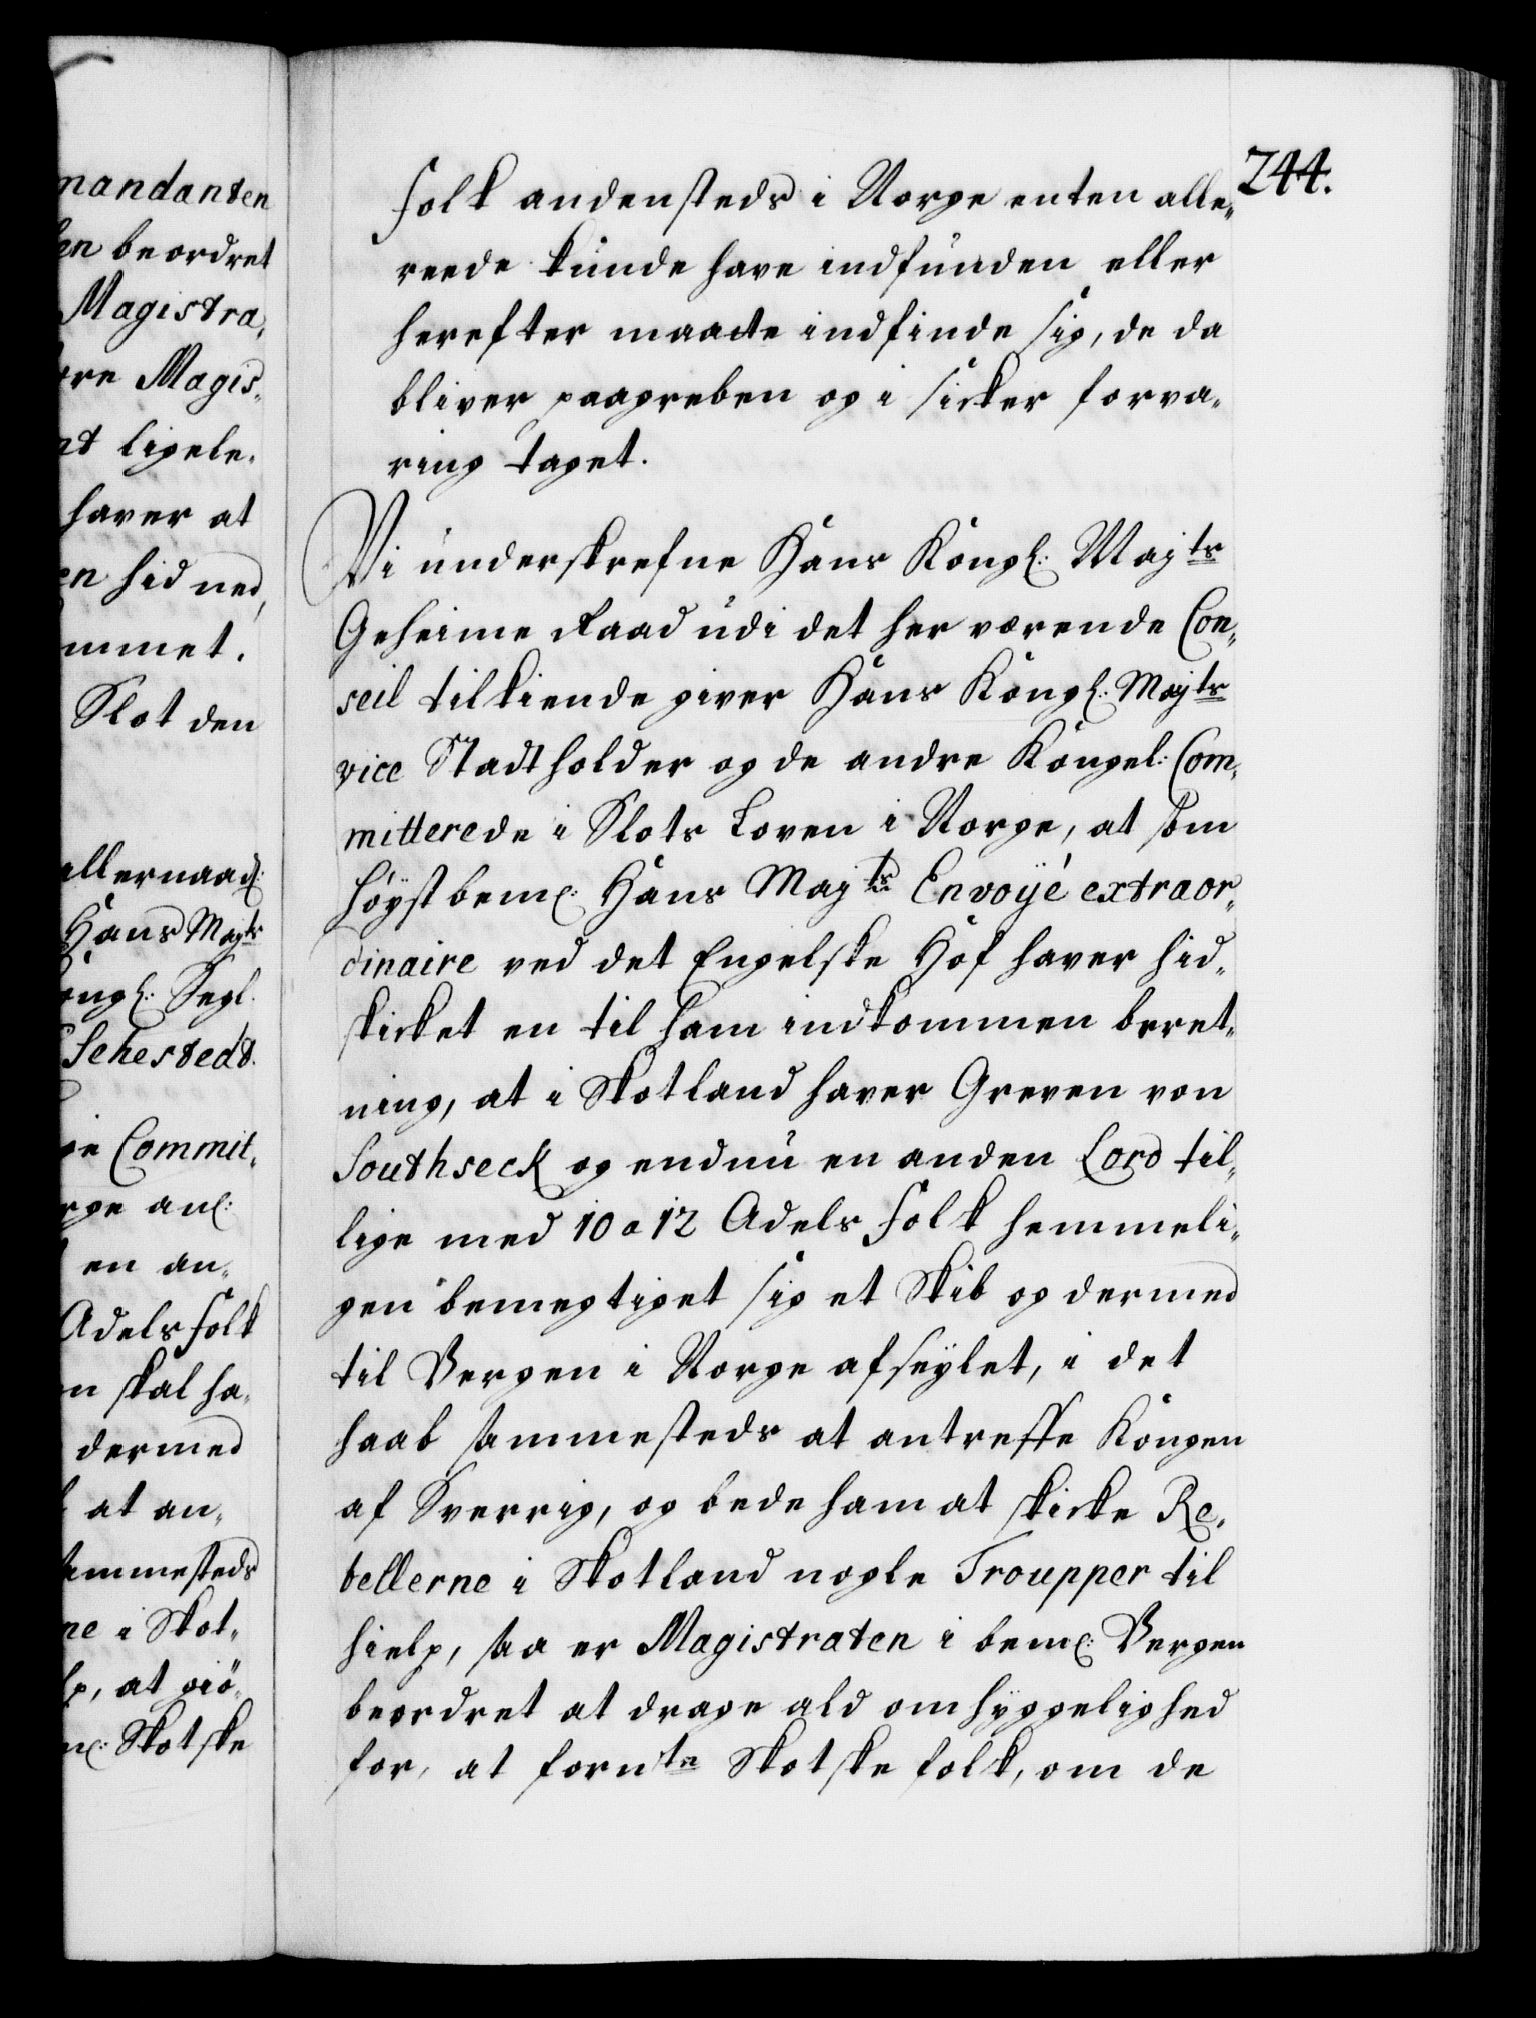 mandanten
en beordret
Magistra„
re Magis„
nt ligele„
haver at
en hid ned„
mmet.
Slot den
allernaad:
Hans Majts
ongl: Segl.
Sehestedt.
ge Commit„
rge anl:
en an„
Adels folk
n skal ha„
dermed
at an„
ammesteds
ne i Skot„
lp, at giö„
ml: Skotske
244.
folk andensteds i Norge enten alle„
reede kunde have indfunden eller
herefter maatte indfinde sig, de da
bliver paagreben og i sicker forva„
ring taget.
Vi underskrefne Hans Kongl: Majts
Geheime Raad udi det her værende Con„
seil tilkiende giver Hans Kongl: Majts
vice Stadtholder og de andre Kongel: Com„
mitterede i Slots Loven i Norge, at som
høystbeml: Hans Majts Envoyé extraor„
dinaire ved det Engelske Hof haver hid„
skicket en til ham indkommen beret„
ning, at i Skotland haver Greven von
Southseck og endnu en anden Lord til„
lige med 10 a 12 Adels folk hemmeli„
gen bemegtiget sig et Skib og dermed
til Bergen i Norge afseylet, i det
haab sammesteds at antreffe Kongen
af Sverrig, og bede ham at skicke Re„
bellerne i Skotland nogle Troupper til
hielp, saa er Magistraten i beml: Bergen
beordret at drage ald omhyggelighed
for, at fornte Skotske folk, om de